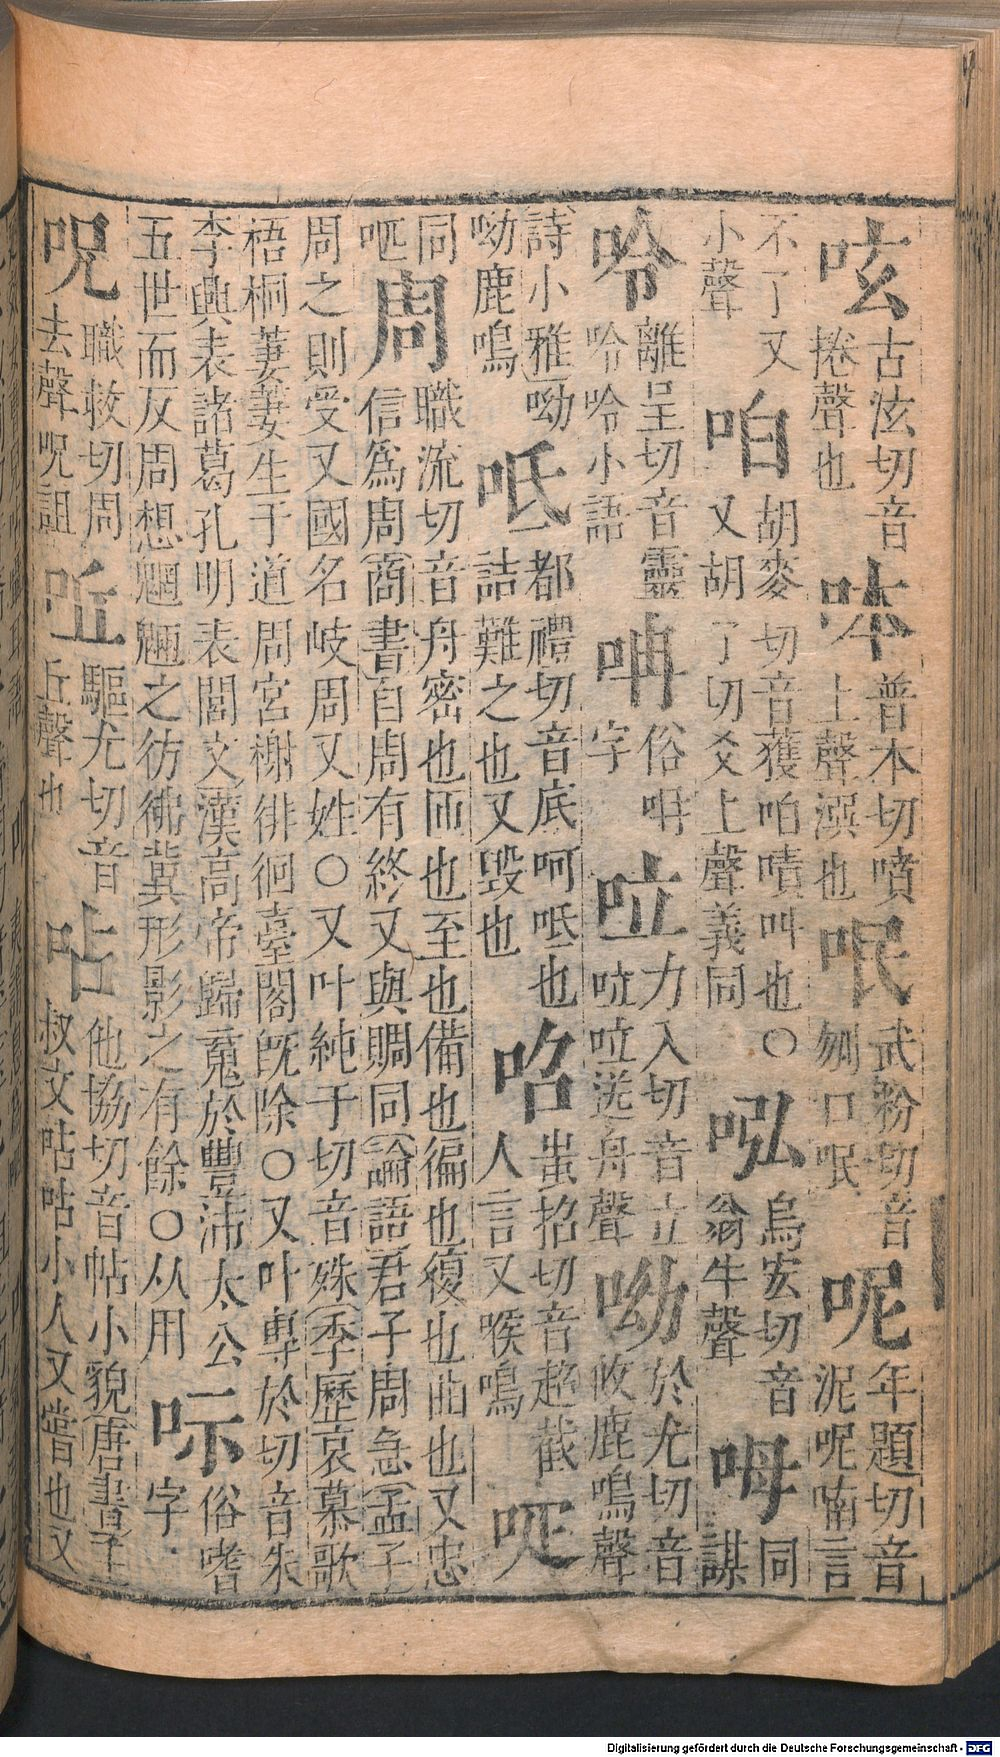 呟古泫切音捲聲也呠普本切噴上聲潠也呡武粉切音刎口呡呢年題切音泥呢喃言
不了又小聲咟胡麥切音獲咟嘖叫也○又胡了切爻上聲義同烏宏切音翁牛聲呣同謀
呤離呈切音靈呤呤小語俗字力入切音立送舟聲呦於尤切音攸鹿鳴聲
詩小雅呦呦鹿鳴呧都禮切音底呵呧也詰難之也又毀也蚩招切音超截人言又喉鳴
同周職流切音舟密也匝也至也備也徧也復也曲也又忠信爲周商書自周有終又與賙同論語君子周急孟子
周之則受又國名岐周又姓○又叶純于切音殊季歷哀慕歌梧桐萋萋生于道周宮榭徘徊臺閣既除○又叶專於切音朱
李興表諸葛孔明表閭文漢高帝歸䰟於豐沛太公五世而反周想魍魎之彷彿冀形影之有餘○从用呩俗嗜字
呪職救切周去聲呪詛驅尤切音丘聲也呫他協切音帖小貌唐書王叔文呫呫小人又嘗也又
Digitalisierung gefördert durch die Deutsche Forschungsgemeinschaft - DFG